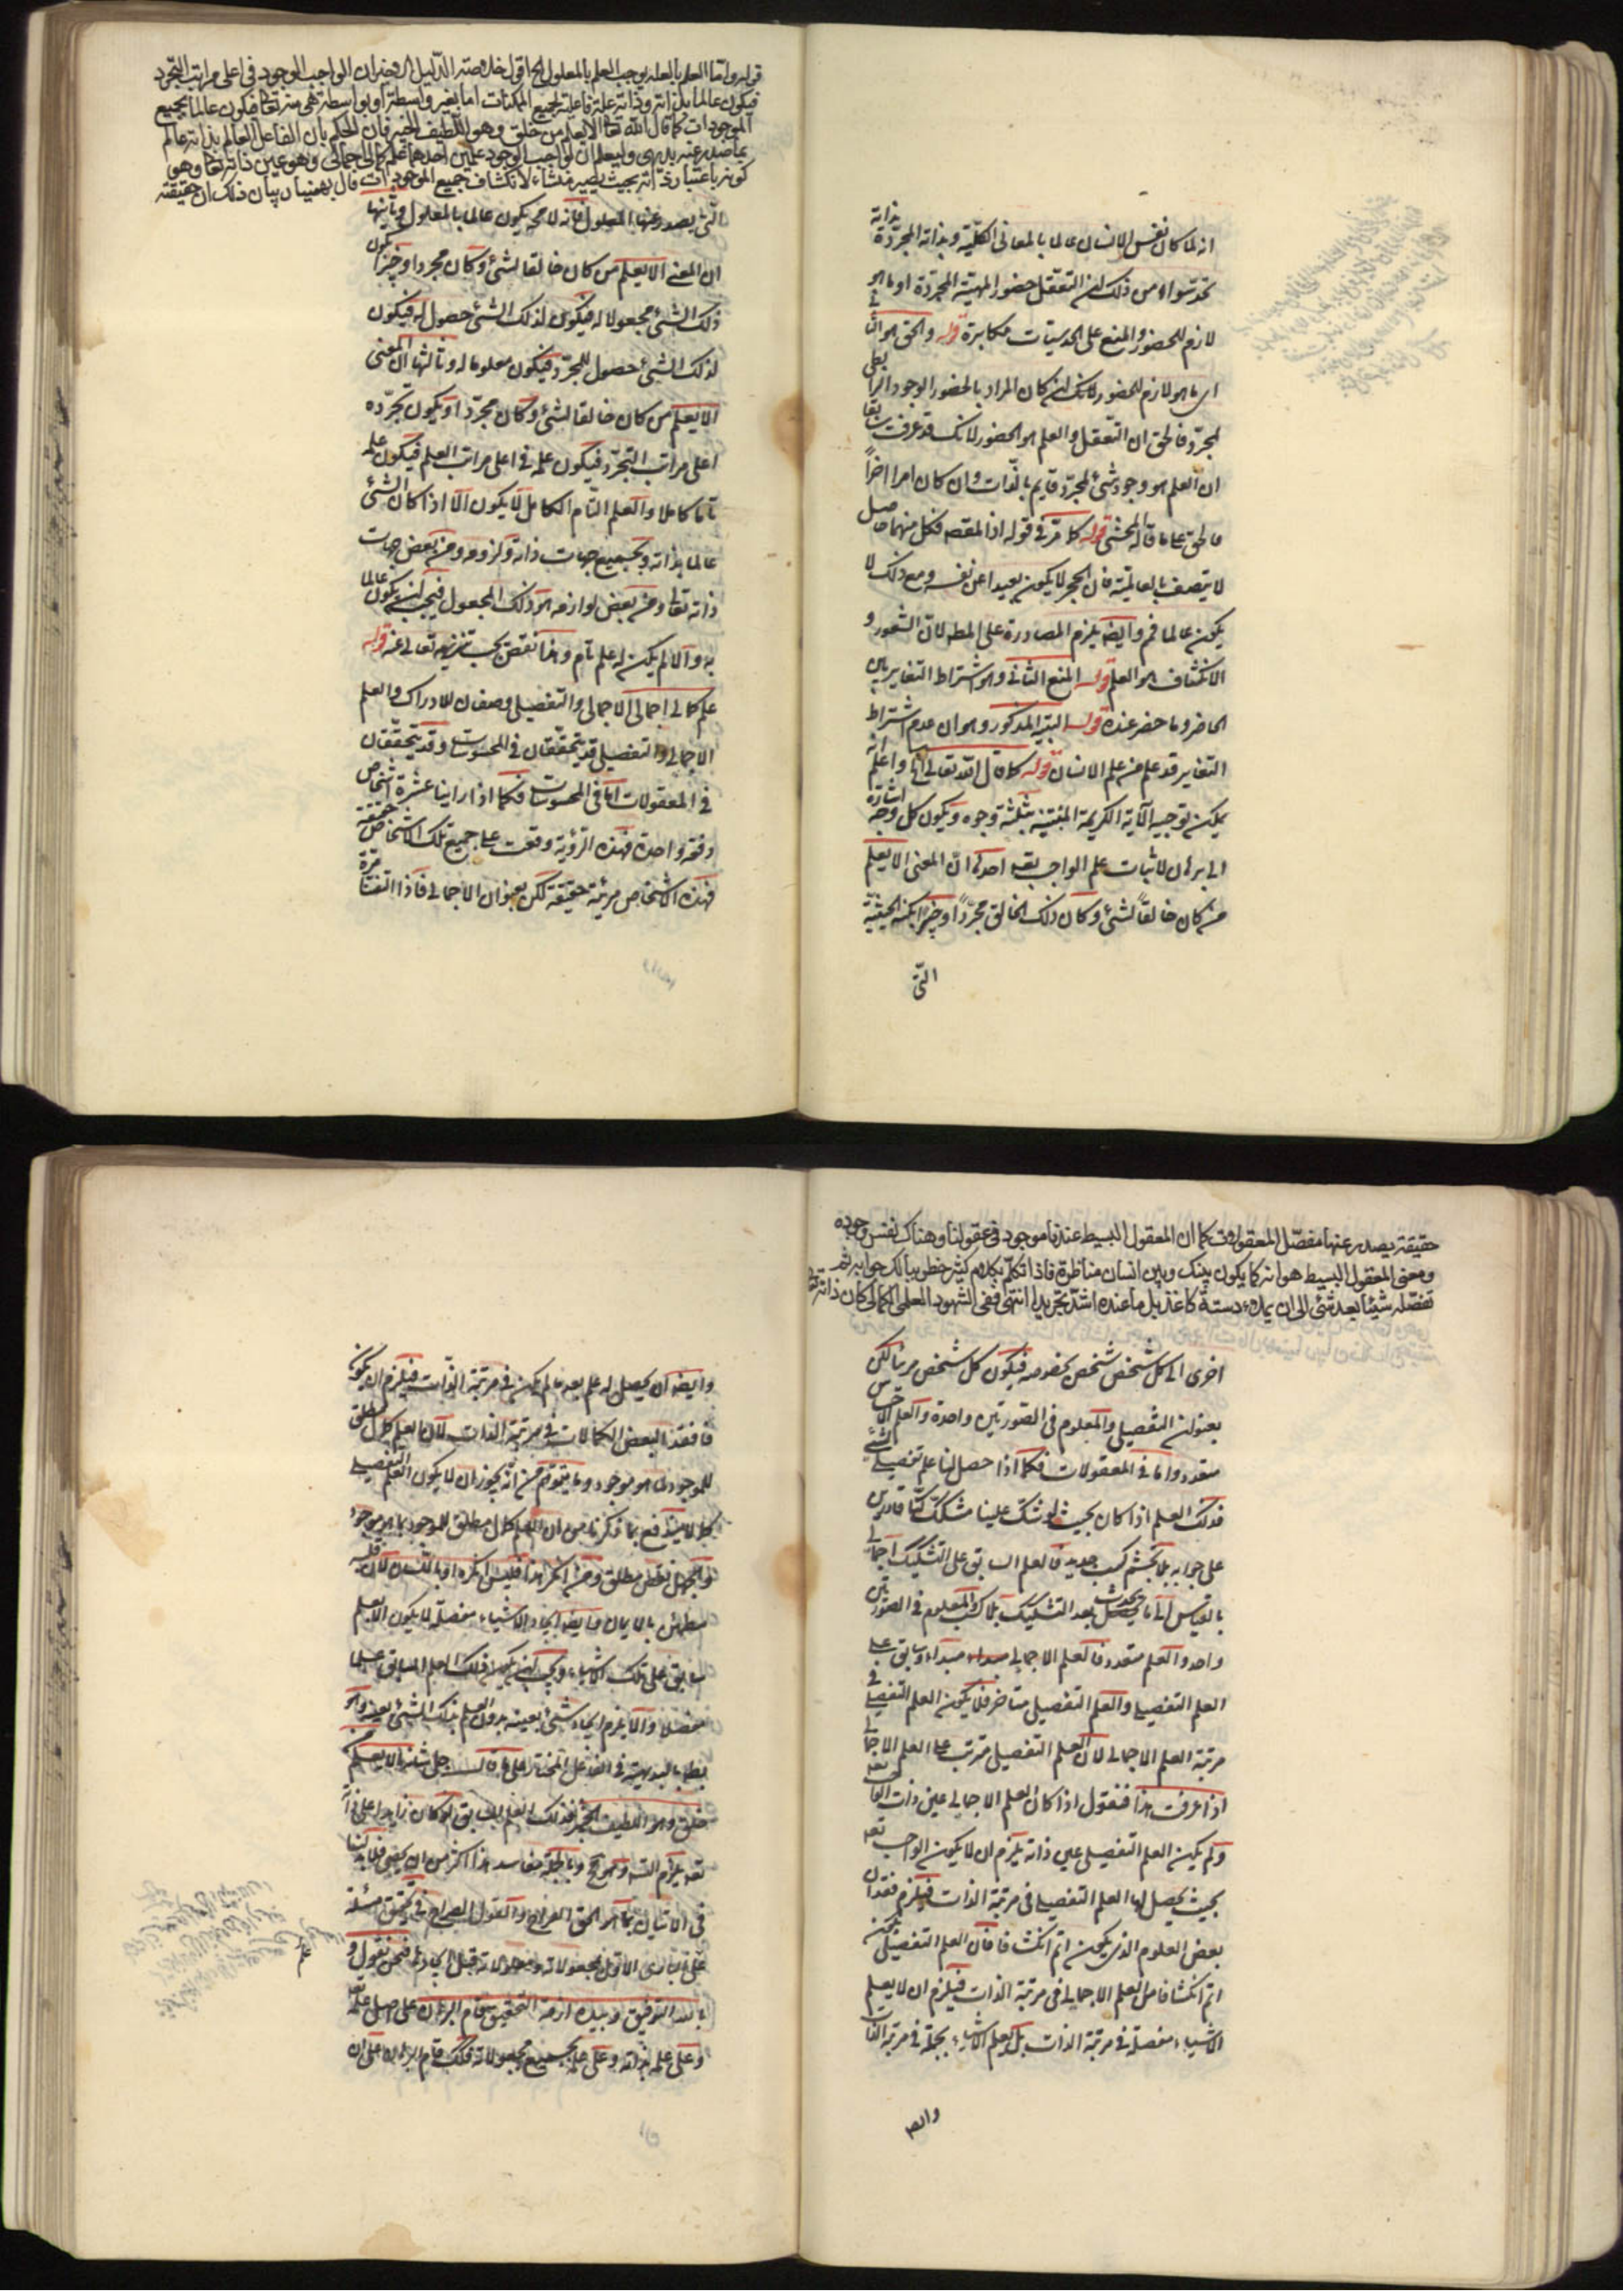 انه لما كان نفس الانسان عالما بالمعانى الكلية وبذاته المجردة بذاته
تحدسوا من ذلك ان التعقل حضور المهية المجردة او ما هو
لازم للحضور والمنع على الحدسيات مكابرة قوله والحق هو الثانى
اى ما هو لازم للحضور لكن ان كان المراد بالحضور الوجود الرابطى
لمجرد فالحق ان التعقل والعلم هو الحضور لانك قد عرفت سابقا
ان العلم هو وجود شئ لمجرد قايم بالذات وان كان امرا اخرا
فالحق على ما قاله المحشى قوله كما مر فى قوله اذ المقصه فكل منهما حاصل
لا يتصف بالعالمية فان الحجر لا يكون بعيدا عن نفسه ومع ذلك لا
يكون عالما فمر وايضا يلزم المصادرة على المطه لان الشعور و
الانكشاف هو العلم قوله المنع الثانى وهو اشتراط التغاير بين
الحاضر وما حضر عنده قوله المذكور وهو ان عدم اشتراط
التغاير قد علم من علم الانسان قوله كما قال الله تعالى الخ واعلم انه
يمكن توجيه الآية الكريمة بثلثة وجوه ويكون كل وجه اشارة
الى برهان لاثبات علم الواجب تعه احدها ان المعنى الا يعلم
من كان خالقا لشئ وكان ذلك الخالق مجردا وخبيرا بكنه الحيثية
التى
قوله واما العلم بالعلة يوجب العلم بالمعلول الخ اقول خلاصة الدليل الاخير ان الواجب الوجود فى اعلى مراتب التجرد
فيكون عالما بذاته وذاته علة فاعلة لجميع الممكنات اما بغير واسطة او بواسطة هى منه تعا فيكون عالما بجميع
الموجودات كما قال الله تعا الا يعلم من خلق وهو اللطيف الخبير فان الحكم بان الفاعل العالم بذاته عالم
بما صدر عنه بديهى وليعلم ان لواجب الوجود علمين احدهما علم كمالى اجمالى وهو عين ذاته تعا وهو
كونه باعتبار ذاته بحيث يصير منشاء لانكشاف جميع الموجودات قال بهمنيار بيان ذلك ان حقيقته
التى يصدر عنها المعلول فانه لا محه يكون عالما بالمعلول وثانيها
ان المعنى الا يعلم من كان خالقا لشئ وكان مجردا وخبيرا يكون
ذلك الشئ مجعولا له فيكون لذلك الشئ حصول له فيكون
لذلك الشئ حصول للمجرد فيكون معلوما له وثالثها ان المعنى
الا يعلم من كان خالقا لشئ وكان مجردا ويكون تجرده
اعلى مراتب التجرد فيكون علمه فى اعلى مراتب العلم فيكون علمه
تاما كاملا والعلم التام الكامل لا يكون الا اذا كان الشئ
عالما بذاته وبجميع جهات ذاته ولزومه ومن بعض جهات
ذاته تعالى ومن بعض لوازمه هو ذلك المجعول فيجب ان يكون عالما
به والا لم يكن له علم تام وهذا نقص يجب تنزيهه تعالى عنه قوله
علم كمالى اجمالى الاجمالى والتفصيلى وصفان للادراك والعلم
الاجمالى والتفصيلى قد يتحققان فى المحسوسات وقد يتحققان
فى المعقولات اما فى المحسوسات فكما اذا راينا عشرة اشخاص
دفعة واحدة فهذه الرؤية وقعت على جميع تلك الاشخاص حقيقة
فهذه الاشخاص مرئية حقيقة لكن بعنوان الاجمالى فاذا التفتنا مرة
حقيقة يصدر عنها مفصل المعقولات كما ان المعقول البسيط عندنا موجود فى عقولنا وهناك نفس وجوده
ومعنى المعقول البسيط هو انه كما يكون بينك وبين انسان مناظرة فاذا تكلم بكلام كثير خطر ببالك جوابه ثم
تفصله شيئا بعد شئ الى ان يملاء دستة كاغذ بل ما عنده اشد تجريدا انتهى ففى الشهود العلمى الكمالى كان ذاته تعا
اخرى الى كل شخص شخص بخصوصه فيكون كل شخص مرئيا لكن
بعنوان التفصيلى والمعلوم فى الصورتين واحدة والعلم الاحساس
متعدد واما فى المعقولات فكما اذا حصل لنا علم تفصيلى
فذلك العلم اذا كان بحيث لو شك علينا مشكك كنا قادرين
على جوابه بلا تجشم كسب جديد فالعلم السابق على التشكيك اجمالى
بالقياس الى ما يحدث بعد التشكيك بلا كسب والمعلوم فى الصورتين
واحد والعلم متعدد فالعلم الاجمالى مبداء وسابق على
العلم التفصيلى والعلم التفصيلى متاخر فلا يكون العلم التفصيلى فى
مرتبة العلم الاجمالى لان العلم التفصيلى مترتب على العلم الاجمالى
اذا عرفت هذا فنقول اذا كان العلم الاجمالى عين ذات الواجب تعه
ولم يكن العلم التفصيلى عين ذاته يلزم ان لا يكون الواجب تعه
بحيث يحصل لها العلم التفصيلى فى مرتبة الذات فيلزم فقدان
بعض العلوم الذى يكون اتم انكشافا فان العلم التفصيلى يكون
اتم انكشافا من العلم الاجمالى فى مرتبة الذات فيلزم ان لا يعلم
الاشياء مفصلة فى مرتبة الذات بل يعلم الاشياء بجملة فى مرتبة الذات
وايضا
وايضا ان يحصل له علم بعد ما لم يكن فى مرتبة الذات فيلزم ان يكون
فاقدا لبعض الكمالات فى مرتبة الذات لان العلم كمال مطلق
للموجود بما هو موجود وما يتوهم من انه يجوز ان لا يكون العلم التفصيلى
كمالا يندفع بما ذكرنا من ان العلم كمال مطلق للموجود بما هو موجود
والجهل نقص مطلق ومن انكر هذا فليس انكره الا باللسان لان قلبه
مطمئن بالايمان وايضا ايجاد الاشياء مفصلة لا يكون الا بعلم
سابق على تلك الاشياء ويجب ان يكون ذلك العلم السابق علما
مفصلا والا يلزم ايجاد شئ بعينه بدون العلم بذلك الشئ بعينه وهو
بطه بالبديهية فى الفاعل المختار على ما قال جل شانه الا يعلم من
خلق وهو اللطيف الخبير فذلك العلم السابق لو كان زايدا على ذاته
تعه يلزم التسه وهو مح وبالجملة مفاسد هذا اكثر من ان يحصى فلابد لنا
فى الاتيان بما هو الحق القراح والقول الصراح فى تحقيق مسئلة
علم البارى الاول بمجعولاته ومعلولاته قبل الايجاد فنحن نقول و
بالله التوفيق وبيده ازمة التحقيق لما قام البرهان على اصل علمه تعه
وعلى علمه بذاته وعلى علمه بجميع مجعولاته فكذلك قام البرهان على ان